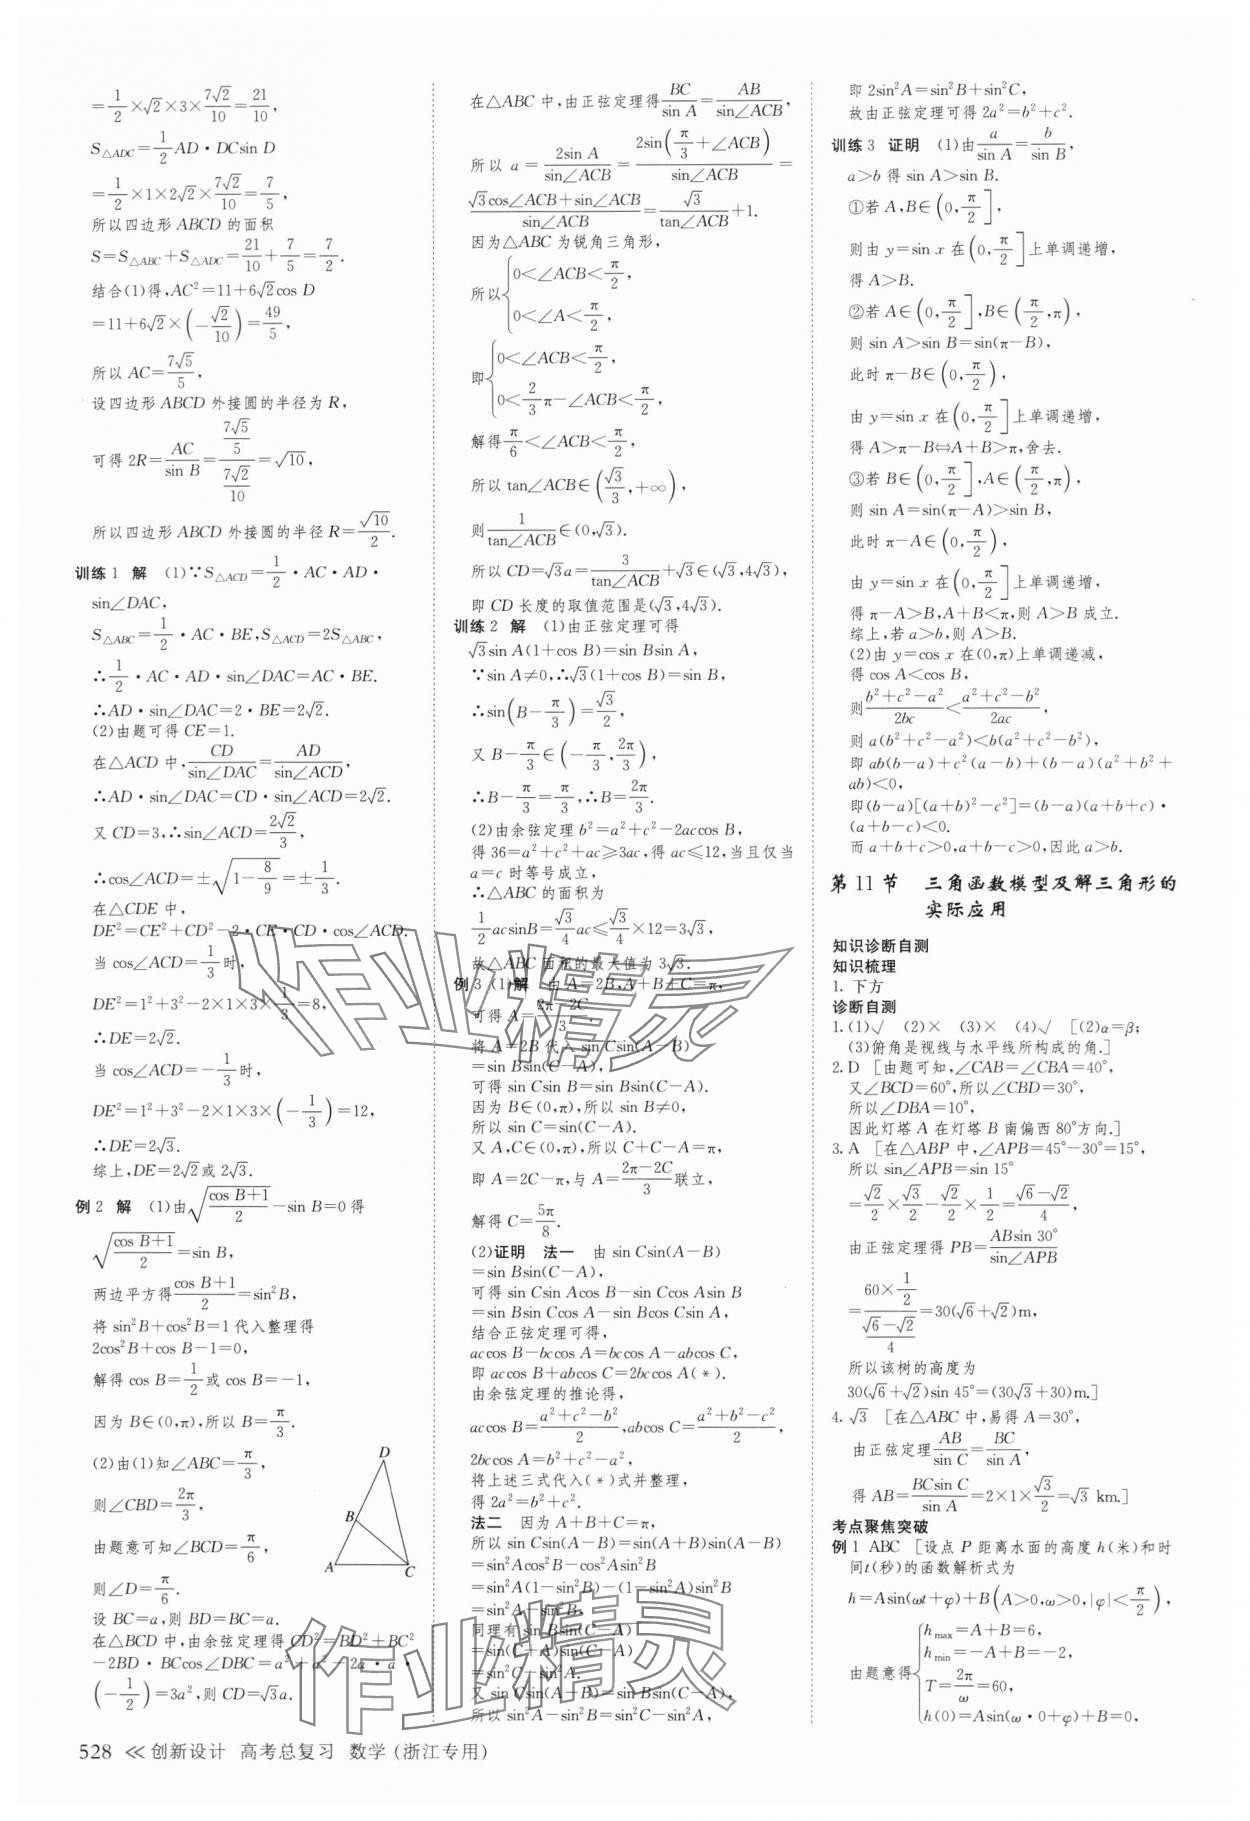 =1/2×√2×3×7√2/10=21/10,
S△ADC=1/2AD·DCsin D
=1/2×1×2√2×7√2/10=7/5,
所以四边形 ABCD 的面积
S=S△ABC+S△ADC=21/10+7/5=7/2.
结合(1)得,AC²=11+6√2cos D
=11+6√2×(-√2/10)=49/5,
所以 AC=7√5/5,
设四边形 ABCD 外接圆的半径为 R,
可得 2R=AC/sin B=(7√5/5)/(7√2/10)=√10,
所以四边形 ABCD 外接圆的半径 R=√10/2.
训练1 解 (1)∵S△ACD=1/2·AC·AD·
sin∠DAC,
S△ABC=1/2·AC·BE,S△ACD=2S△ABC,
∴1/2·AC·AD·sin∠DAC=AC·BE.
∴AD·sin∠DAC=2·BE=2√2.
(2)由题可得 CE=1.
在△ACD 中,CD/sin∠DAC=AD/sin∠ACD,
∴AD·sin∠DAC=CD·sin∠ACD=2√2.
又 CD=3,∴sin∠ACD=2√2/3,
∴cos∠ACD=±√(1-8/9)=±1/3.
在△CDE 中,
DE²=CE²+CD²-2·CE·CD·cos∠ACD.
当 cos∠ACD=1/3时,
DE²=1²+3²-2×1×3×1/3=8,
∴DE=2√2.
当 cos∠ACD=-1/3时,
DE²=1²+3²-2×1×3×(-1/3)=12,
∴DE=2√3.
综上,DE=2√2或 2√3.
例 2 解 (1)由√((cos B+1)/2)-sin B=0得
√((cos B+1)/2)=sin B,
两边平方得(cos B+1)/2=sin²B,
将 sin²B+cos²B=1代入整理得
2cos²B+cos B-1=0,
解得 cos B=1/2或 cos B=-1,
因为 B∈(0,π),所以 B=π/3.
(2)由(1)知∠ABC=π/3,
则∠CBD=2π/3,
由题意可知∠BCD=π/6,
则∠D=π/6.
D
B
A
C
设 BC=a,则 BD=BC=a.
在△BCD 中,由余弦定理得 CD²=BD²+BC²
-2BD·BCcos∠DBC=a²+a²-2a·a·
(-1/2)=3a²,则 CD=√3a.
在△ABC 中,由正弦定理得BC/sin A=AB/sin∠ACB,
所以 a=2sin A/sin∠ACB=2sin(π/3+∠ACB)/sin∠ACB=
(√3cos∠ACB+sin∠ACB)/sin∠ACB=√3/tan∠ACB+1.
因为△ABC 为锐角三角形,
所以{0<∠ACB<π/2,
0<∠A<π/2,
即{0<∠ACB<π/2,
0<2/3π-∠ACB<π/2,
解得π/6<∠ACB<π/2,
所以 tan∠ACB∈(√3/3,+∞),
则1/tan∠ACB∈(0,√3).
所以 CD=√3a=3/tan∠ACB+√3∈(√3,4√3),
即 CD 长度的取值范围是(√3,4√3).
训练2 解 (1)由正弦定理可得
√3sin A(1+cos B)=sin Bsin A,
∵sin A≠0,∴√3(1+cos B)=sin B,
∴sin(B-π/3)=√3/2,
又 B-π/3∈(-π/3,2π/3),
∴B-π/3=π/3,∴B=2π/3.
(2)由余弦定理 b²=a²+c²-2accos B,
得 36=a²+c²+ac≥3ac,得 ac≤12,当且仅当
a=c 时等号成立.
∴△ABC 的面积为
1/2acsinB=√3/4ac≤√3/4×12=3√3,
故△ABC 面积的最大值为 3√3.
例 3 (1)解 由 A=2B,A+B+C=π,
可得 A=(2π-2C)/3.
将 A=2B 代入 sin Csin(A-B)
=sin Bsin(C-A),
可得 sin Csin B=sin Bsin(C-A).
因为 B∈(0,π),所以 sin B≠0,
所以 sin C=sin(C-A).
又 A,C∈(0,π),所以 C+C-A=π,
即 A=2C-π,与 A=(2π-2C)/3联立,
解得 C=5π/8.
(2)证明 法一 由 sin Csin(A-B)
=sin Bsin(C-A),
可得 sin Csin Acos B-sin Ccos Asin B
=sin Bsin Ccos A-sin Bcos Csin A,
结合正弦定理可得,
accos B-bccos A=bccos A-abcos C,
即 accos B+abcos C=2bccos A(*).
由余弦定理的推论得,
accos B=(a²+c²-b²)/2,abcos C=(a²+b²-c²)/2,
2bccos A=b²+c²-a²,
将上述三式代入(*)式并整理,
得 2a²=b²+c².
法二 因为 A+B+C=π,
所以 sin Csin(A-B)=sin(A+B)sin(A-B)
=sin²Acos²B-cos²Asin²B
=sin²A(1-sin²B)-(1-sin²A)sin²B
=sin²A-sin²B,
同理有 sin Bsin(C-A)
=sin(C+A)sin(C-A)
=sin²C-sin²A.
又 sin Csin(A-B)=sin Bsin(C-A),
所以 sin²A-sin²B=sin²C-sin²A,
即 2sin²A=sin²B+sin²C,
故由正弦定理可得 2a²=b²+c².
训练3 证明 (1)由a/sin A=b/sin B,
a>b 得 sin A>sin B.
①若 A,B∈(0,π/2],
则由 y=sin x 在(0,π/2]上单调递增,
得 A>B.
②若 A∈(0,π/2],B∈(π/2,π),
则 sin A>sin B=sin(π-B),
此时 π-B∈(0,π/2),
由 y=sin x 在(0,π/2]上单调递增,
得 A>π-B⇔A+B>π,舍去.
③若 B∈(0,π/2],A∈(π/2,π),
则 sin A=sin(π-A)>sin B,
此时 π-A∈(0,π/2),
由 y=sin x 在(0,π/2]上单调递增,
得 π-A>B,A+B<π,则 A>B 成立.
综上,若 a>b,则 A>B.
(2)由 y=cos x 在(0,π)上单调递减,
得 cos A<cos B,
则(b²+c²-a²)/2bc<(a²+c²-b²)/2ac,
则 a(b²+c²-a²)<b(a²+c²-b²),
即 ab(b-a)+c²(a-b)+(b-a)(a²+b²+
ab)<0,
即(b-a)[(a+b)²-c²]=(b-a)(a+b+c)·
(a+b-c)<0.
而 a+b+c>0,a+b-c>0,因此 a>b.
第 11 节 三角函数模型及解三角形的
实际应用
知识诊断自测
知识梳理
1. 下方
诊断自测
1.(1)√ (2)× (3)× (4)√ [(2)α=β;
(3)俯角是视线与水平线所构成的角.]
2.D [由题可知,∠CAB=∠CBA=40°,
又∠BCD=60°,所以∠CBD=30°,
所以∠DBA=10°,
因此灯塔 A 在灯塔 B 南偏西 80°方向.]
3.A [在△ABP 中,∠APB=45°-30°=15°,
所以 sin∠APB=sin 15°
=√2/2×√3/2-√2/2×1/2=(√6-√2)/4,
由正弦定理得 PB=ABsin 30°/sin∠APB
=(60×1/2)/((√6-√2)/4)=30(√6+√2)m,
所以该树的高度为
30(√6+√2)sin 45°=(30√3+30)m.]
4.√3 [在△ABC 中,易得 A=30°,
由正弦定理AB/sin C=BC/sin A,
得 AB=BCsin C/sin A=2×1×√3/2=√3 km.]
考点聚焦突破
例 1 ABC [设点 P 距离水面的高度 h(米)和时
间t(秒)的函数解析式为
h=Asin(ωt+φ)+B(A>0,ω>0,|φ|<π/2),
由题意得{hmax=A+B=6,
hmin=-A+B=-2,
T=2π/ω=60,
h(0)=Asin(ω·0+φ)+B=0,
528 ≪ 创新设计 高考总复习 数学(浙江专用)
作业精灵
作业精灵